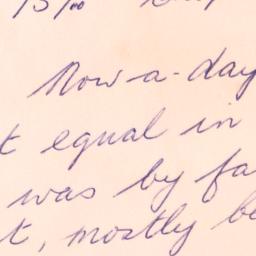 Now-a-day
t equal in
was by fa
t, mostly be